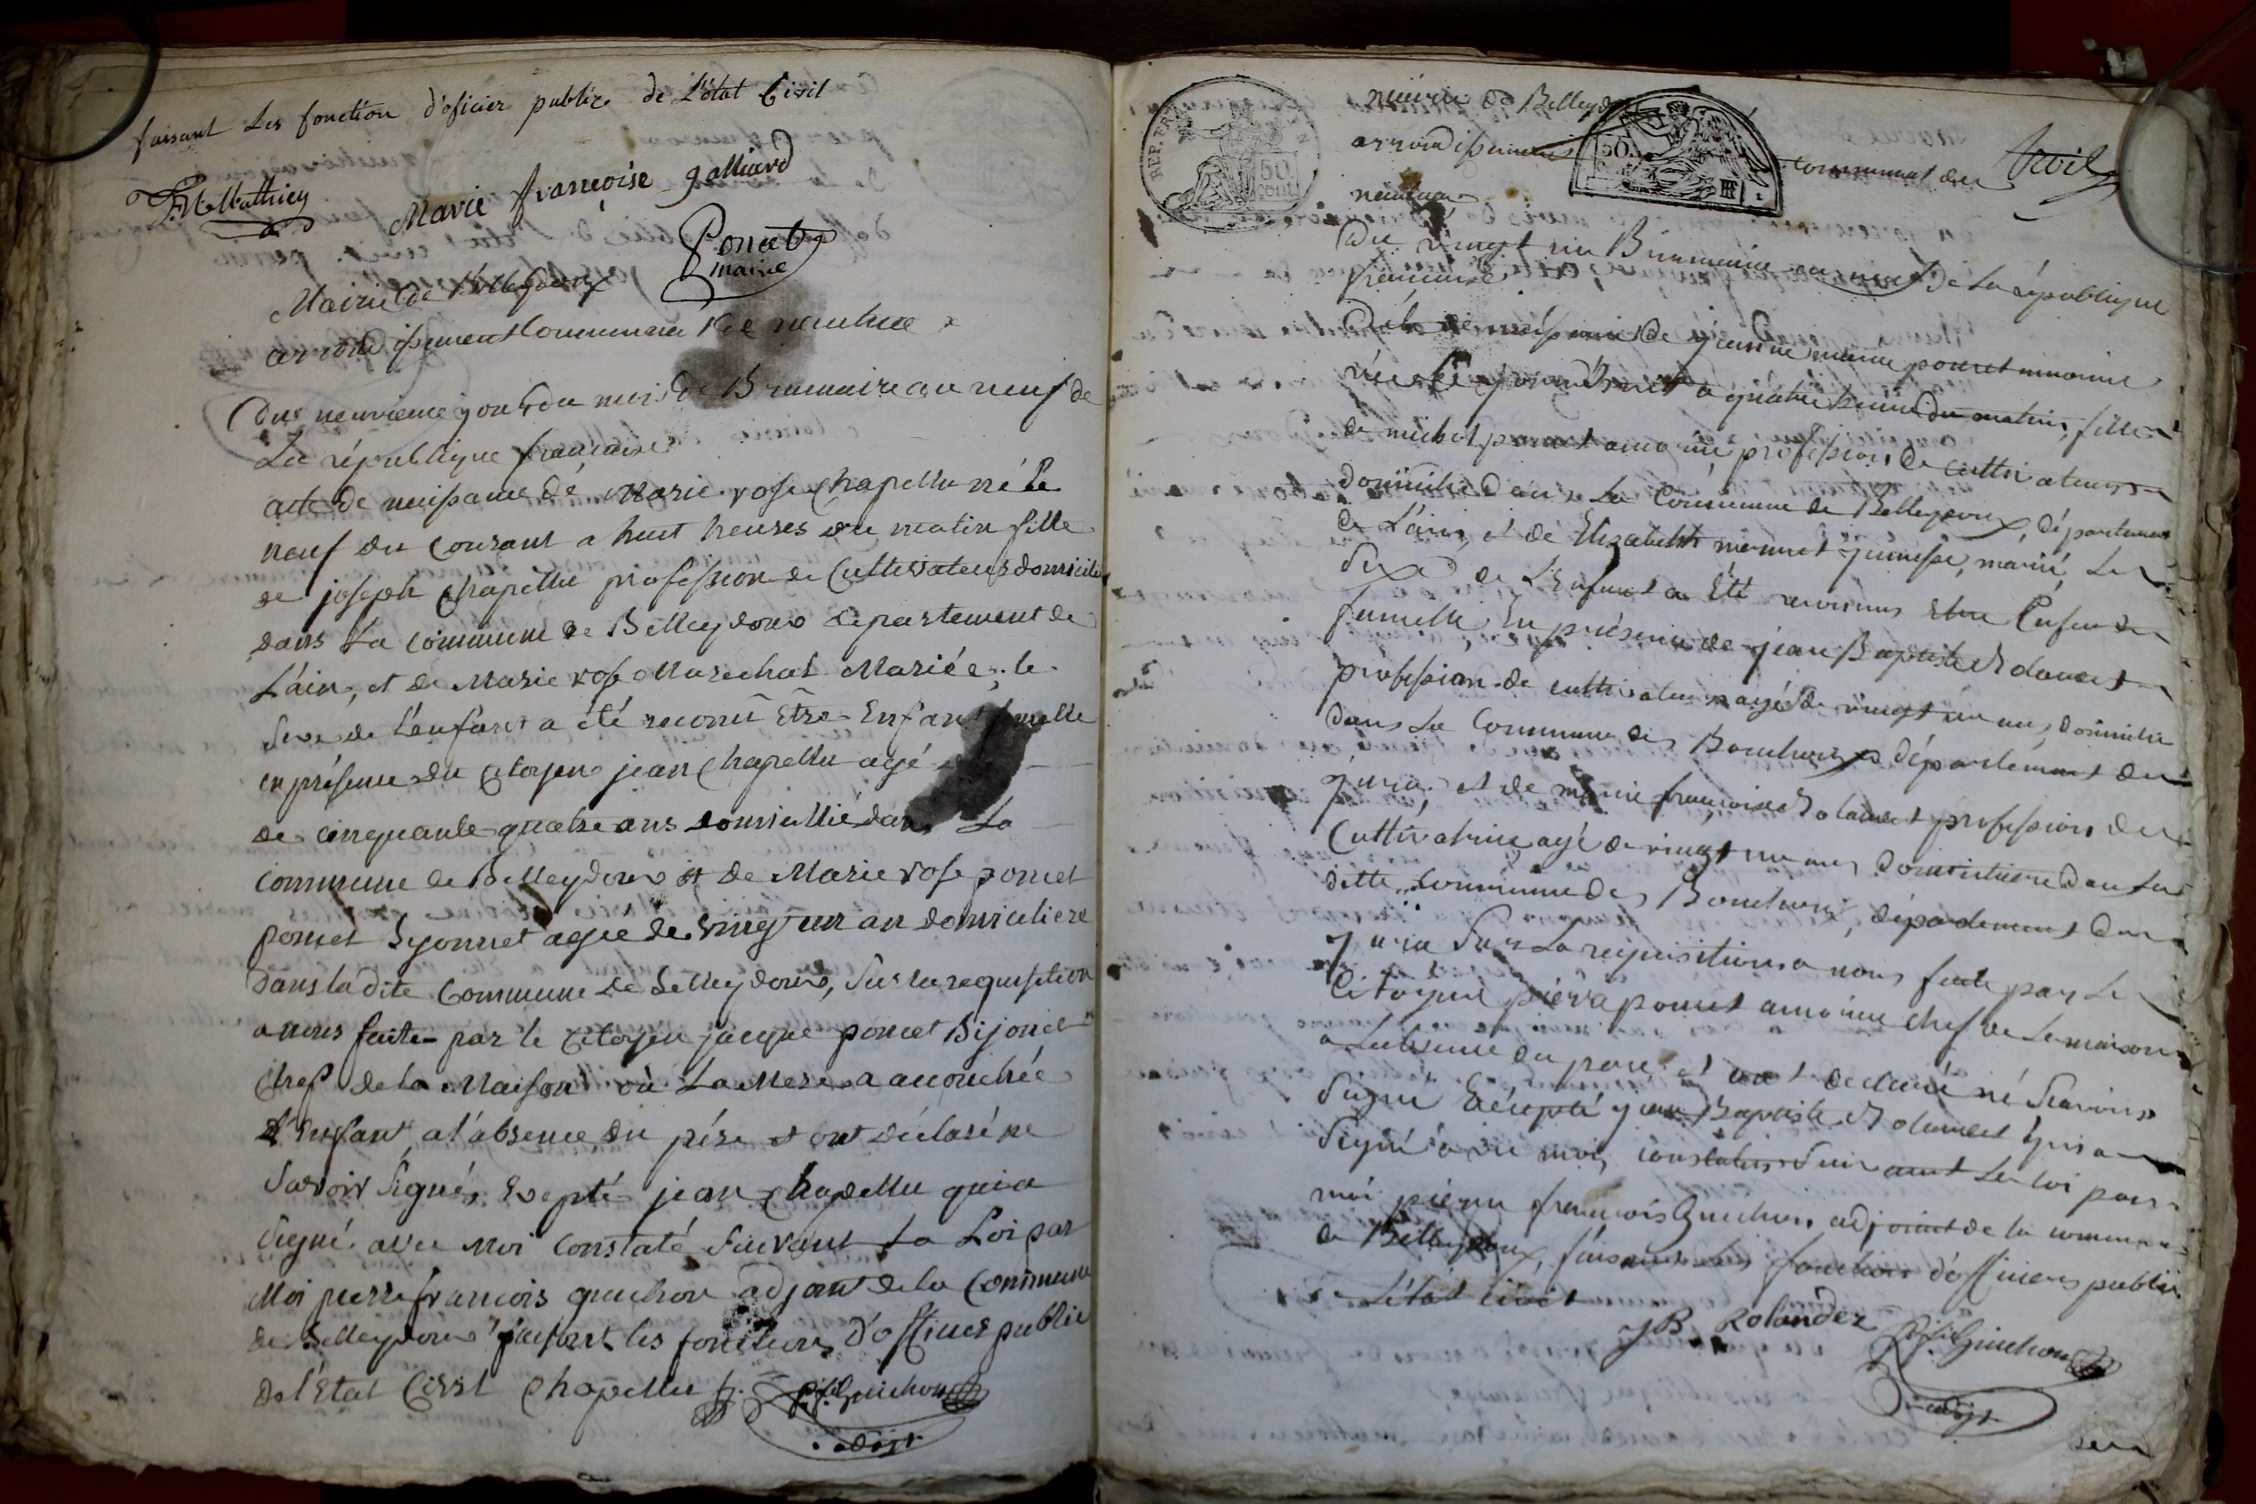 faisant les fonction d'oficier public de L'état Civil
Marie françoise galliard
Poncet
maire
Mairie de Belleydoux
arrondissement Communal de nantua
Du neuvieme jour du mois de Brumaire an neuf de
La république française
acte de naissance de Marie rose Chapellu né le
neuf du Courant a huit heures du matin fille
de joseph Chapellu profession de Cultivateur domicilié
dans La Commune de Belleydoux département de
L'ain, et de Marie rose Marechal Mariée, le
sexe de L'enfant a été reconu Etre Enfant femelle
en présence du Citoyen jean Chapellu agé
de cinquante quatre ans domicillié dans La
Commune de Belleydoux et de Marie rose poncet
poncet Bijonnet agée de vingt un an domiciliere
Dans la dite Commune de Belleydoux, Sur la requisition
a nous faite par le Citoyen jacque poncet Bijonet
Chef de la Maison où La Mere a acouchée
L'enfant, a l'absence du pére et ont déclaré ne
Savoir Signér, Exepté jean Chapellu qui a
Signé avec Moi Constaté Suivant La Loi par
Moi pierre françois guichon adjoint de la Commune
de Belleydoux faisant les fonctions D'officier public
de l'Etat Civil Chapellu
P. f. Guichon
adjt
REP. FRA
50
cent
50
mairie de Belleydoux
arrondissement communal de
nantua
Du vingt un Brumaire an neuf de La république
francaise
de naissance de jeanne marie poncet amoine
née le jour a quatre heures du matin, fille
de michel poncet amoine profession de cultivateur
domicilié dans La Commune de Belleydoux, département
de L'ain, et de Elizabeth mermet marié, Le
Sexe de L'enfant a Eté reconnus Etre Enfan
femelle, En présence de jean Baptiste Rolandet
profession de cultivateur agé de vingt un ans, domicilié
dans La Commune des Bouchoux département du
jura, et de marie françoise Rolandet profession de
Cultivatrice agé de vingt un ans, domiciliere dans La
ditte Commune des Bouchoux, département du
jura Sur La requisition a nous faite par Le
Citoyen pierre poncet amoine chef de La maison
a L'absence du pere et ont declaré né Scavoir
Signé Excepté jean Baptiste Rolandet qui a
Signé avec moi, constaté Suivant La Loi par
moi pierre francois Guichon adjoint de la commune
de Belleydoux, faisant les fonction d'officiers public
de L'état civil
JB Rolandez
P. f. Guichon
adjt